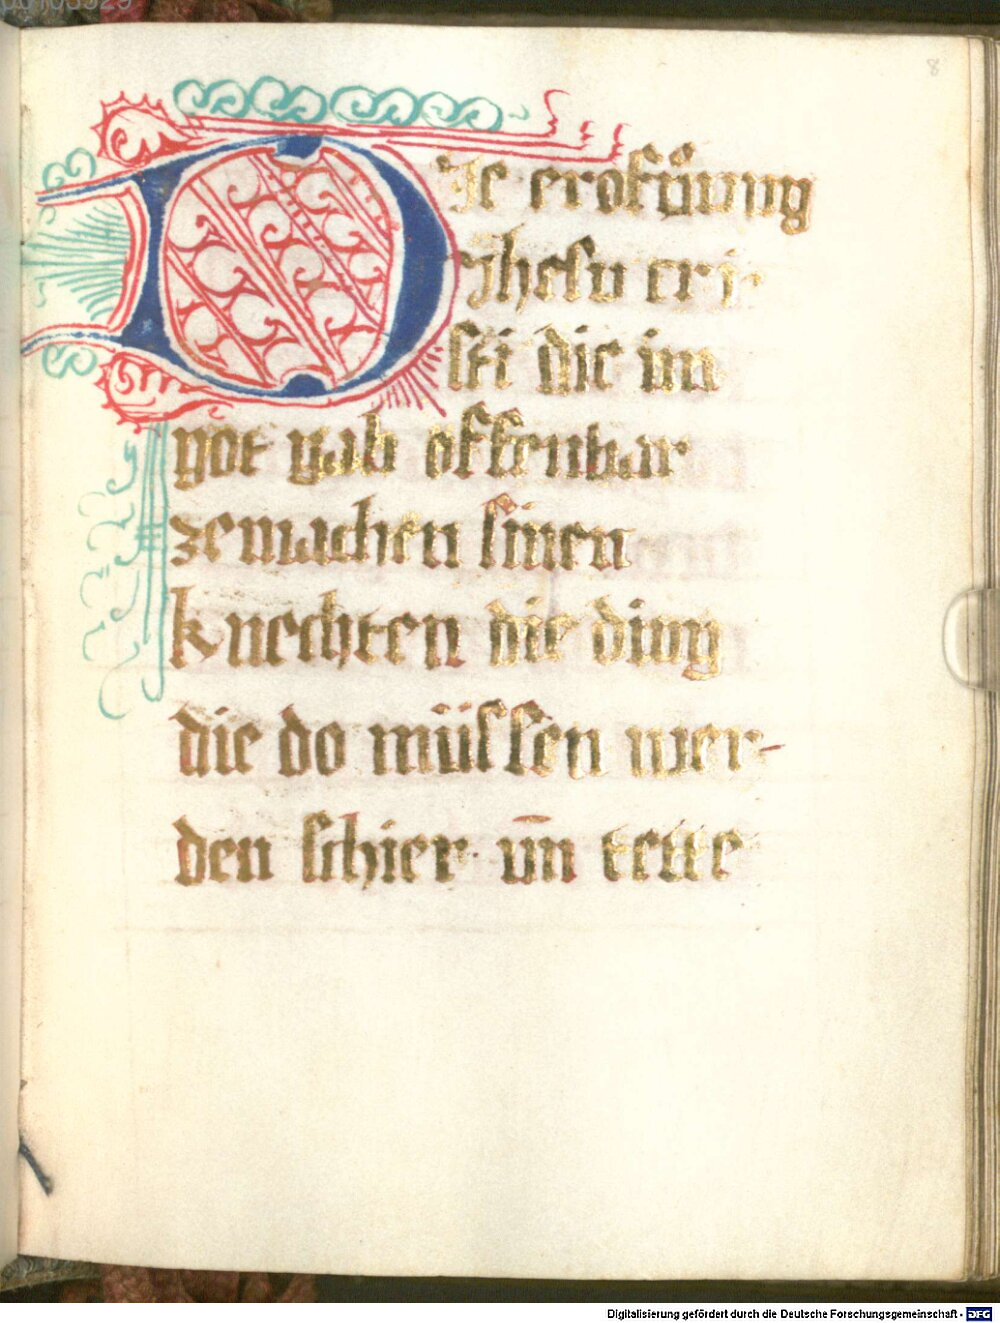 8
DJe erofnůung
Jhesu cri-
sti die im
got gab offenbar
zemachen sinen
knechten die ding
die do müssen wer-
den schier vn̄ tette
Digitalisierung gefördert durch die Deutsche Forschungsgemeinschaft - DFG